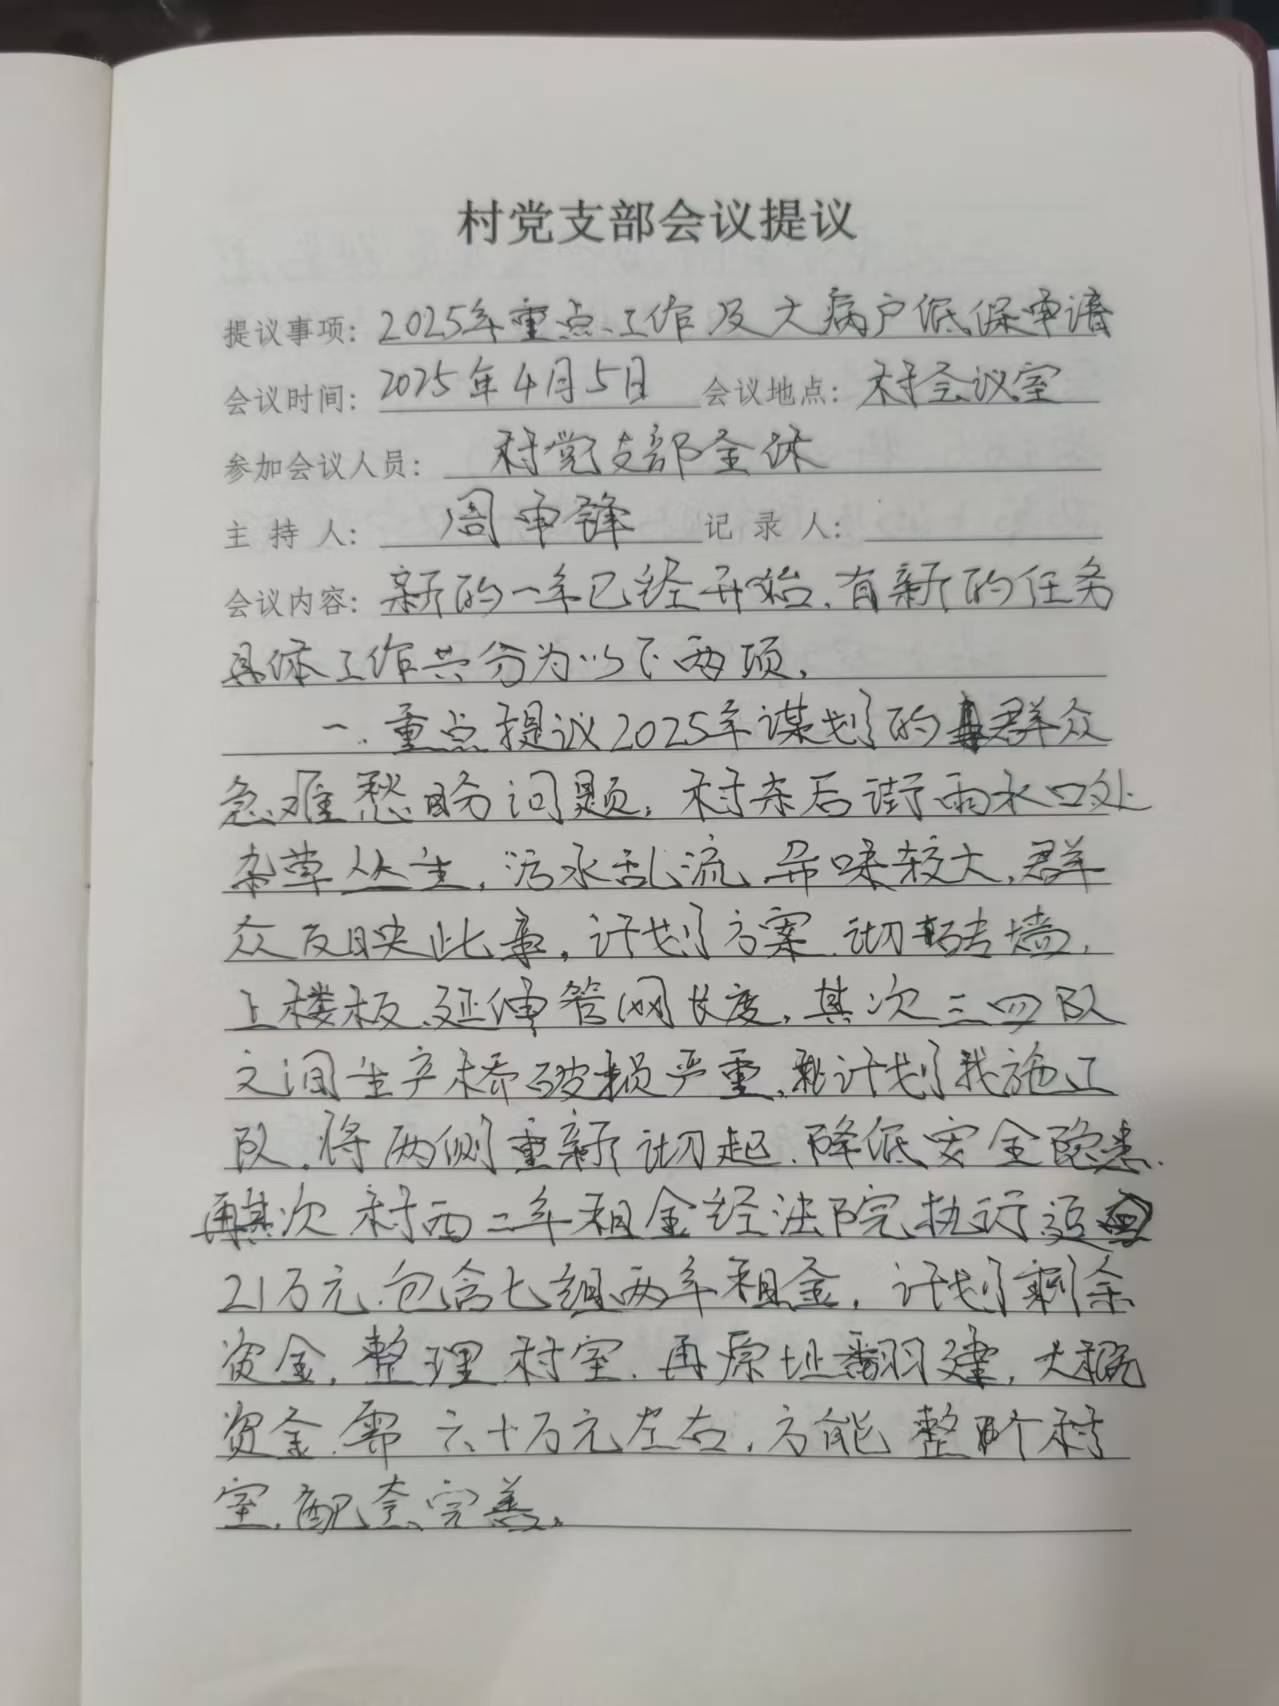 村党支部会议提议
提议事项：2025年重点工作及大病户低保申请
会议时间：2025年4月5日 会议地点：村会议室
参加会议人员：村党支部全体
主持人：周审锋 记录人：
会议内容：新的一年已经开始，有新的任务
具体工作共分为以下两项。
一. 重点提议2025年谋划的群众
急难愁盼问题，村东后街雨水口处
杂草丛生，污水乱流，异味较大，群
众反映此事，计划方案，砌砖墙，
上楼板，延伸管网长度，其次三四队
之间生产桥破损严重，计划找施工
队，将两侧重新砌起，降低安全隐患.
再其次村西二年租金经法院执行追回
21万元，包含七组两年租金，计划剩余
资金，整理村室，再原址翻建，大概
资金需六十万元左右，方能整个村
室，配套完善。